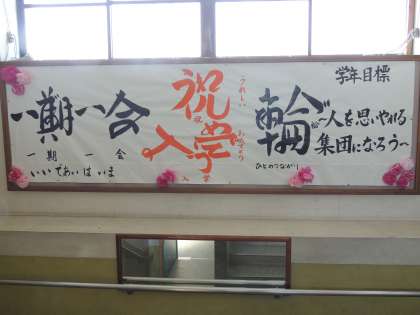 一期一会
一期一会
いいであいはいま
祝
入学
うれしい
学年目標
輪
～人を思いやれる
集団になろう～
ひとのつながり